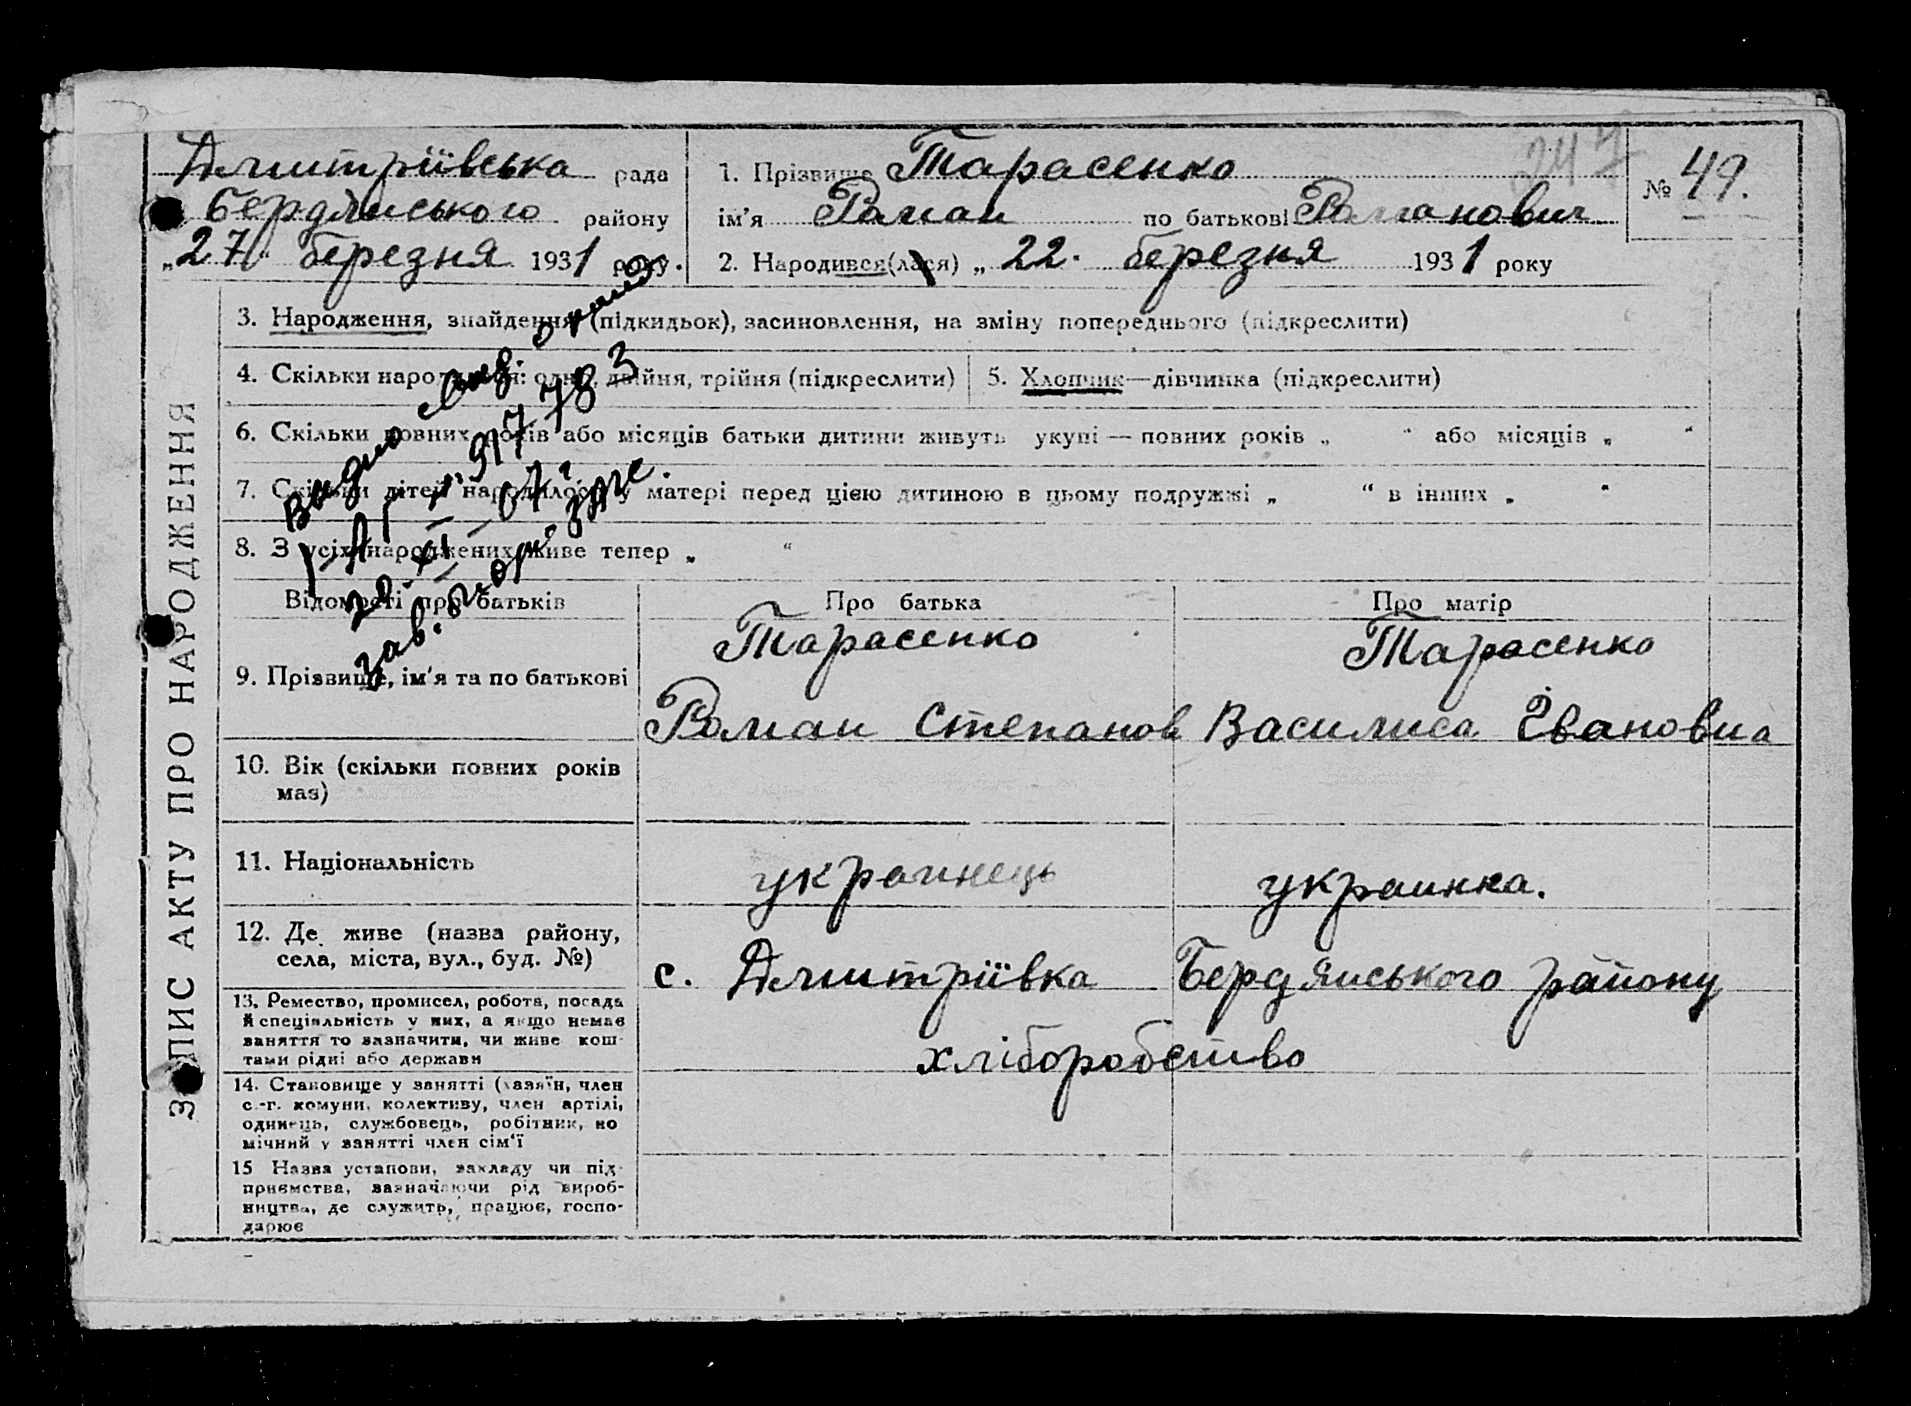 Дмитріївська рада
Бердянського району
„27“ березня 1931 року.
1. Прізвище Тарасенко
ім’я Роман по батькові Романович
2. Народився(лася) „ 22. березня 1931 року
247
№ 49.
3. Народження, знайдення (підкидьок), засиновлення, на зміну попереднього (підкреслити)
4. Скільки народилося: одне, двійня, трійня (підкреслити)
5. Хлопчик—дівчинка (підкреслити)
6. Скільки повних років або місяців батьки дитини живуть укупі — повних років „ “ або місяців „ “
7. Скільки дітей народилося у матері перед цією дитиною в цьому подружжі „ “ в інших „ “
8. З усіх народжених живе тепер „ “
Видно
№ 917783
20-XI-
зав.
ЗАПИС АКТУ ПРО НАРОДЖЕННЯ
Відомості про батьків
Про батька
Про матір
9. Прізвище, ім’я та по батькові
Тарасенко
Роман Степанов
Тарасенко
Василиса Івановна
10. Вік (скільки повних років
має)
11. Національність
украинець
украинка.
12. Де живе (назва району,
села, міста, вул., буд. №)
с. Дмитріївка Бердянського району
13. Ремество, промисел, робота, посада
й спеціяльність у них, а якщо немає
заняття то зазначити, чи живе кош-
тами рідні або держави
хліборобство
14. Становище у занятті (хазяїн, член
с.-г. комуни, колективу, член артілі,
одинець, службовець, робітник, по
мічний у занятті член сім’ї
15 Назва установи, закладу чи під-
приємства, зазначаючи рід вироб-
ництва, де служить, працює, госпо-
дарює